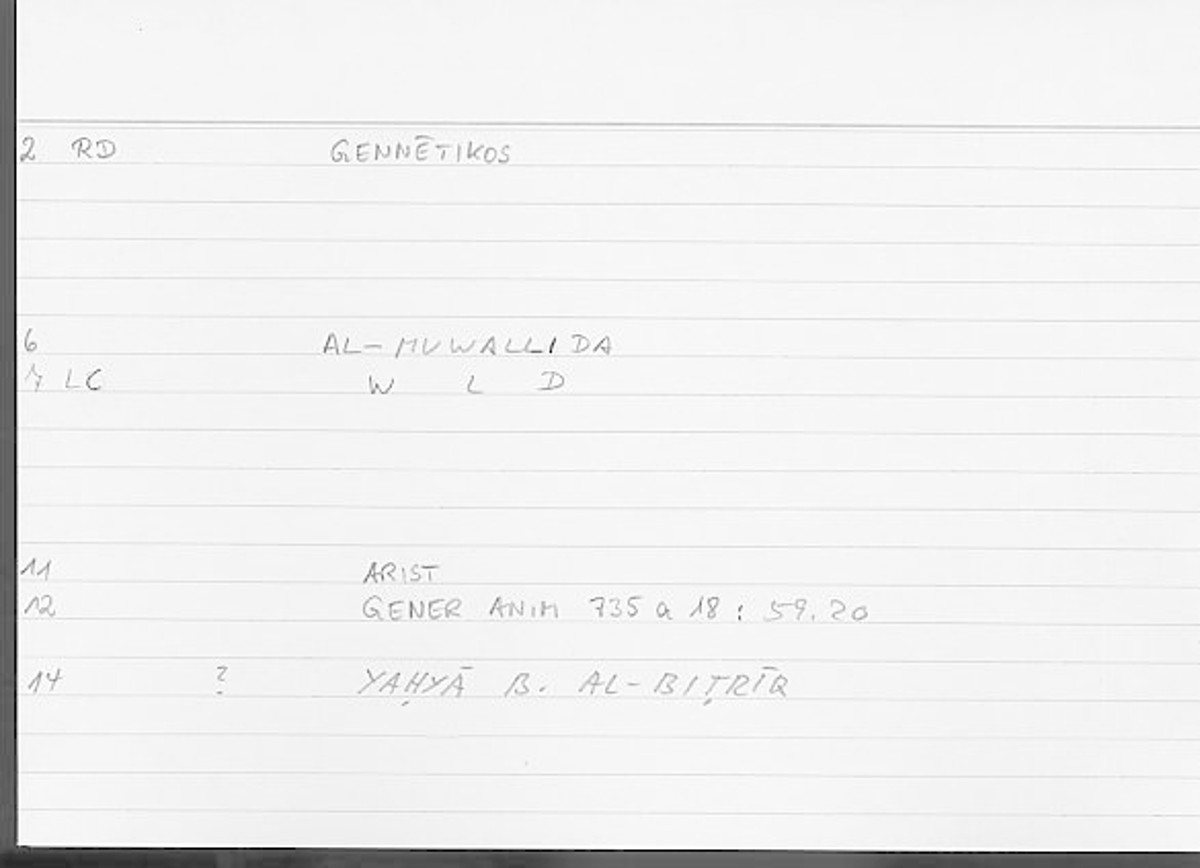 2 RD GENNĒTIKOS
6 AL-MUWALLIDA
7 LC W L D
11 ARIST
12 GENER ANIM 735 a 18 : 59.20
14 ? YAḤYĀ B. AL-BIṬRĪQ